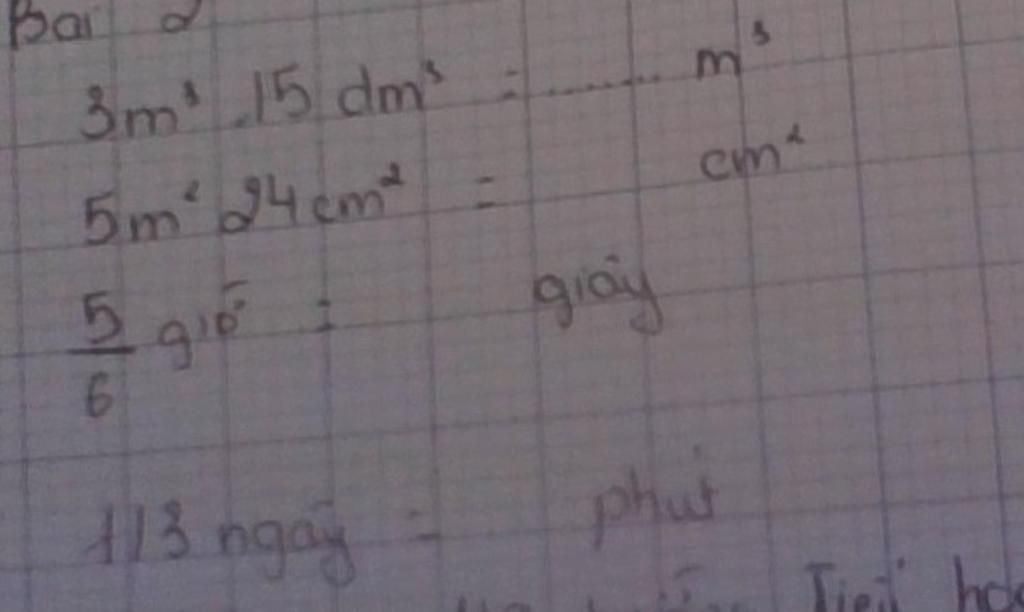 Bài 2
3m³ 15 dm³ = ........ m³
5m² 24cm² = cm²
5/6 giờ = giây
113 ngày = phút
Tiết